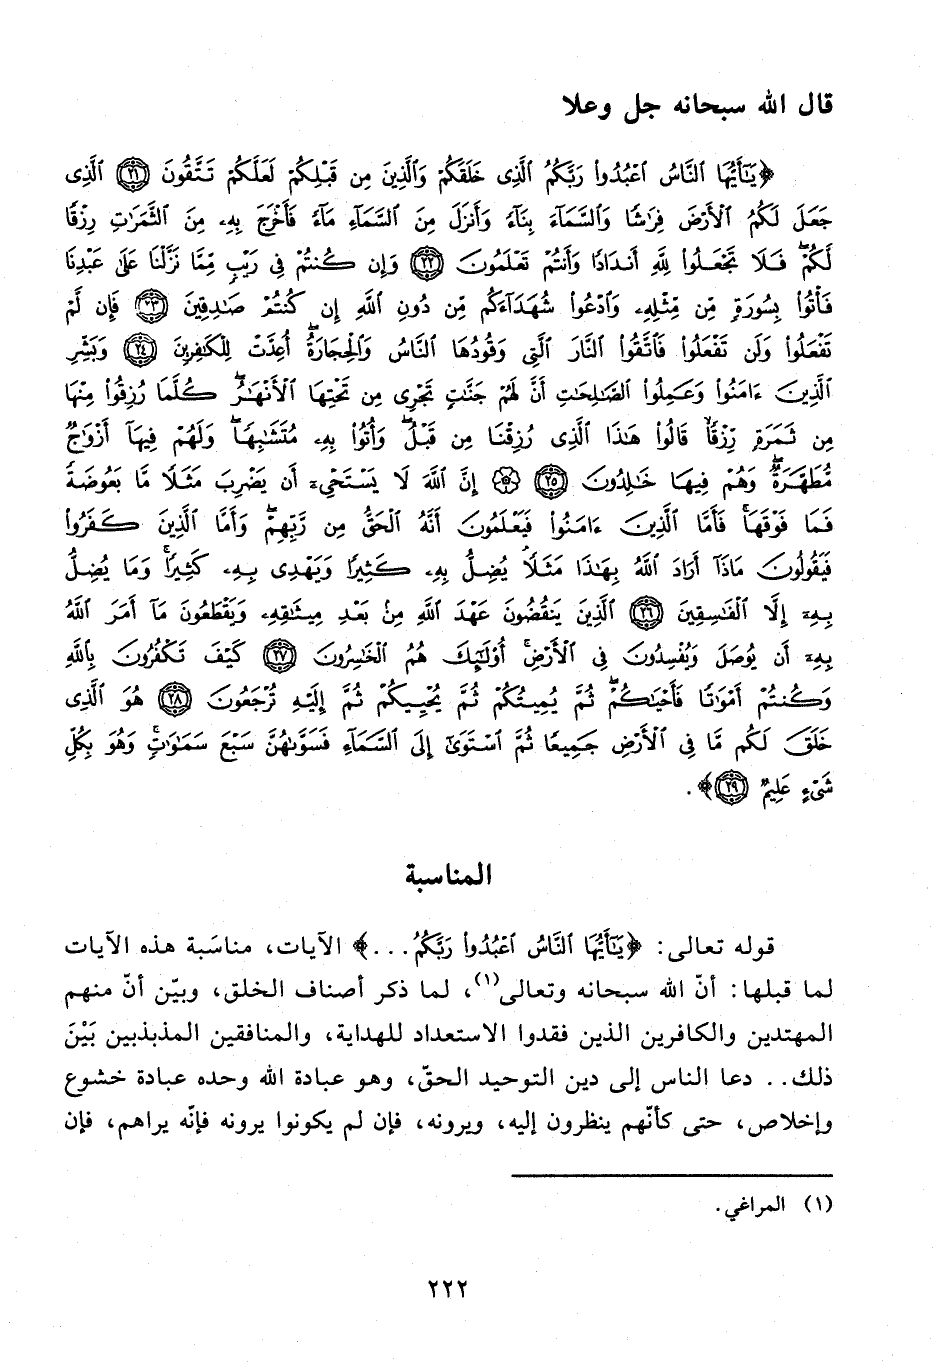 قال الله سبحانه جل وعلا
﴿يَٰٓأَيُّهَا ٱلنَّاسُ ٱعْبُدُوا۟ رَبَّكُمُ ٱلَّذِى خَلَقَكُمْ وَٱلَّذِينَ مِن قَبْلِكُمْ لَعَلَّكُمْ تَتَّقُونَ ٢١ ٱلَّذِى
جَعَلَ لَكُمُ ٱلْأَرْضَ فِرَٰشًا وَٱلسَّمَآءَ بِنَآءً وَأَنزَلَ مِنَ ٱلسَّمَآءِ مَآءً فَأَخْرَجَ بِهِۦ مِنَ ٱلثَّمَرَٰتِ رِزْقًا
لَّكُمْ ۖ فَلَا تَجْعَلُوا۟ لِلَّهِ أَندَادًا وَأَنتُمْ تَعْلَمُونَ ٢٢ وَإِن كُنتُمْ فِى رَيْبٍ مِّمَّا نَزَّلْنَا عَلَىٰ عَبْدِنَا
فَأْتُوا۟ بِسُورَةٍ مِّن مِّثْلِهِۦ وَٱدْعُوا۟ شُهَدَآءَكُم مِّن دُونِ ٱللَّهِ إِن كُنتُمْ صَٰدِقِينَ ٢٣ فَإِن لَّمْ
تَفْعَلُوا۟ وَلَن تَفْعَلُوا۟ فَٱتَّقُوا۟ ٱلنَّارَ ٱلَّتِى وَقُودُهَا ٱلنَّاسُ وَٱلْحِجَارَةُ ۖ أُعِدَّتْ لِلْكَٰفِرِينَ ٢٤ وَبَشِّرِ
ٱلَّذِينَ ءَامَنُوا۟ وَعَمِلُوا۟ ٱلصَّٰلِحَٰتِ أَنَّ لَهُمْ جَنَّٰتٍ تَجْرِى مِن تَحْتِهَا ٱلْأَنْهَٰرُ ۖ كُلَّمَا رُزِقُوا۟ مِنْهَا
مِن ثَمَرَةٍ رِّزْقًا ۙ قَالُوا۟ هَٰذَا ٱلَّذِى رُزِقْنَا مِن قَبْلُ ۖ وَأُتُوا۟ بِهِۦ مُتَشَٰبِهًا ۖ وَلَهُمْ فِيهَآ أَزْوَٰجٌ
مُّطَهَّرَةٌ ۖ وَهُمْ فِيهَا خَٰلِدُونَ ٢٥ ۞ إِنَّ ٱللَّهَ لَا يَسْتَحْىِۦٓ أَن يَضْرِبَ مَثَلًا مَّا بَعُوضَةً
فَمَا فَوْقَهَا ۚ فَأَمَّا ٱلَّذِينَ ءَامَنُوا۟ فَيَعْلَمُونَ أَنَّهُ ٱلْحَقُّ مِن رَّبِّهِمْ ۖ وَأَمَّا ٱلَّذِينَ كَفَرُوا۟
فَيَقُولُونَ مَاذَآ أَرَادَ ٱللَّهُ بِهَٰذَا مَثَلًا ۘ يُضِلُّ بِهِۦ كَثِيرًا وَيَهْدِى بِهِۦ كَثِيرًا ۚ وَمَا يُضِلُّ
بِهِۦٓ إِلَّا ٱلْفَٰسِقِينَ ٢٦ ٱلَّذِينَ يَنقُضُونَ عَهْدَ ٱللَّهِ مِنۢ بَعْدِ مِيثَٰقِهِۦ وَيَقْطَعُونَ مَآ أَمَرَ ٱللَّهُ
بِهِۦٓ أَن يُوصَلَ وَيُفْسِدُونَ فِى ٱلْأَرْضِ ۚ أُو۟لَٰٓئِكَ هُمُ ٱلْخَٰسِرُونَ ٢٧ كَيْفَ تَكْفُرُونَ بِٱللَّهِ
وَكُنتُمْ أَمْوَٰتًا فَأَحْيَٰكُمْ ۖ ثُمَّ يُمِيتُكُمْ ثُمَّ يُحْيِيكُمْ ثُمَّ إِلَيْهِ تُرْجَعُونَ ٢٨ هُوَ ٱلَّذِى
خَلَقَ لَكُم مَّا فِى ٱلْأَرْضِ جَمِيعًا ثُمَّ ٱسْتَوَىٰٓ إِلَى ٱلسَّمَآءِ فَسَوَّىٰهُنَّ سَبْعَ سَمَٰوَٰتٍ ۚ وَهُوَ بِكُلِّ
شَىْءٍ عَلِيمٌ ٢٩﴾.
المناسبة
قوله تعالى: ﴿يَٰٓأَيُّهَا ٱلنَّاسُ ٱعْبُدُوا۟ رَبَّكُمُ...﴾ الآيات، مناسَبة هذه الآيات
لما قبلها: أنّ الله سبحانه وتعالى(١)، لما ذكر أصناف الخلق، وبيّن أنّ منهم
المهتدين والكافرين الذين فقدوا الاستعداد للهداية، والمنافقين المذبذبين بَيْنَ
ذلك.. دعا الناس إلى دين التوحيد الحقّ، وهو عبادة الله وحده عبادة خشوع
وإخلاص، حتى كأنّهم ينظرون إليه، ويرونه، فإن لم يكونوا يرونه فإنّه يراهم، فإن
(١) المراغي.
٢٢٢